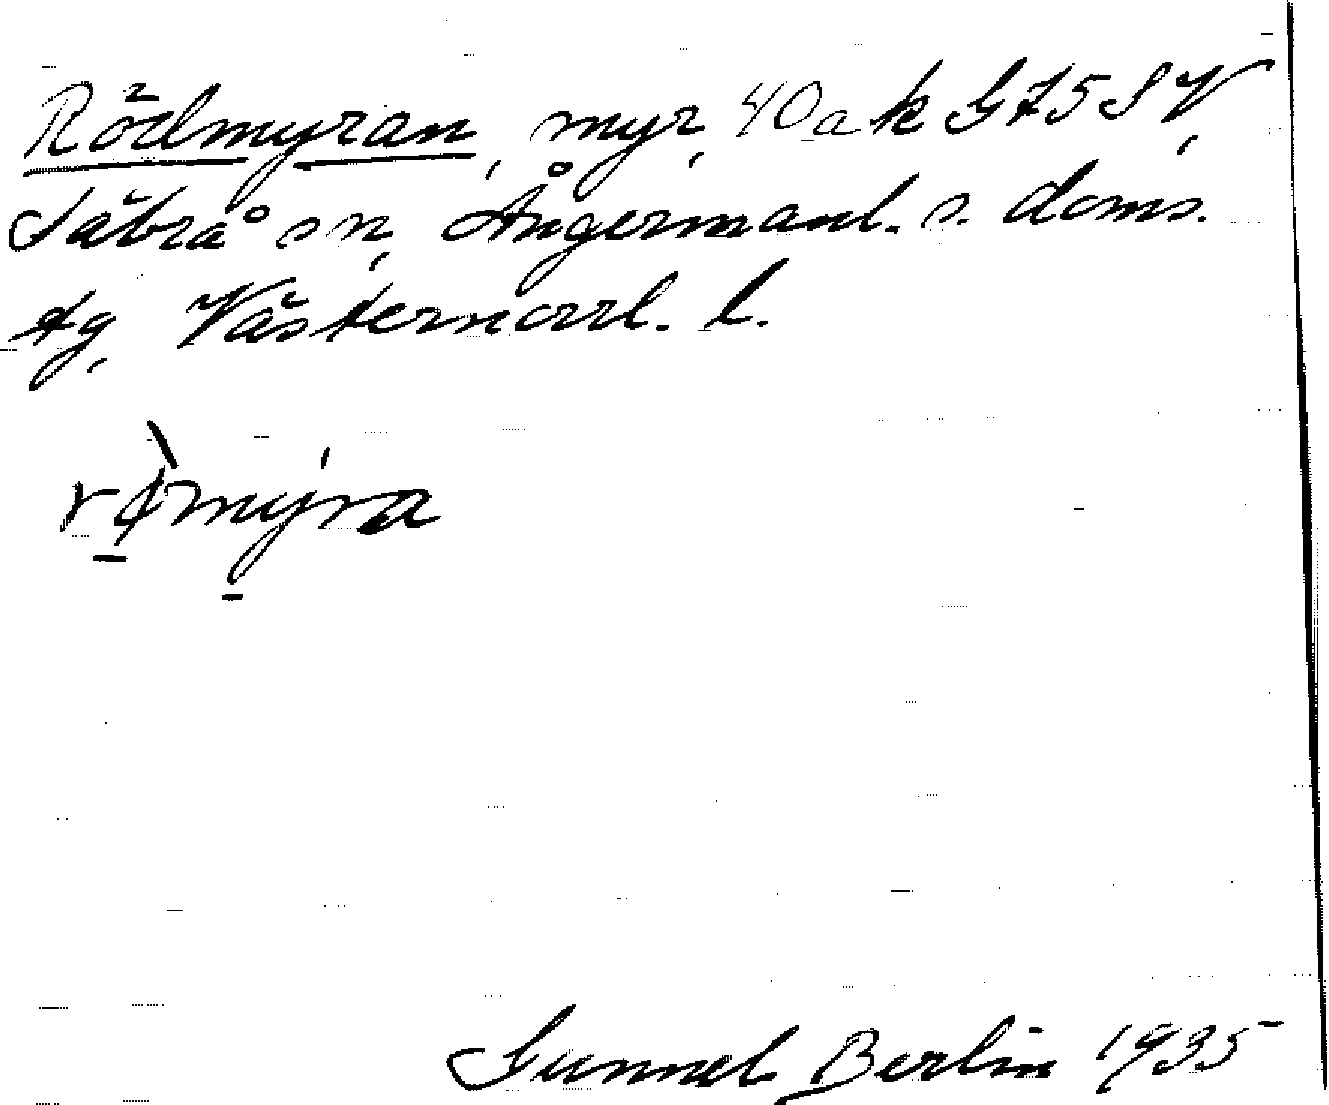 Rödmyran, myr, 40 a k G75SV,
Säbrå sn, Ångermanl. s. doms.
tg, Västernorrl. l.
rømyra
Gunnel Berlin 1935